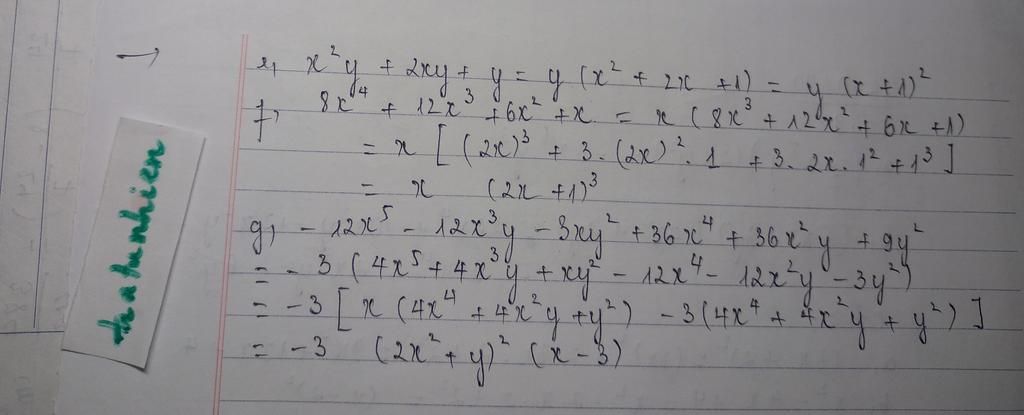 → e, x²y + 2xy + y = y (x² + 2x + 1) = y (x + 1)²
f, 8x⁴ + 12x³ + 6x² + x = x (8x³ + 12x² + 6x + 1)
= x [ (2x)³ + 3. (2x)². 1 + 3. 2x. 1² + 1³ ]
= x (2x + 1)³
g, - 12x⁵ - 12x³y - 3xy² + 36x⁴ + 36x²y + 9y²
= - 3 ( 4x⁵ + 4x³y + xy² - 12x⁴ - 12x²y - 3y²)
= -3 [ x (4x⁴ + 4x²y + y²) - 3 (4x⁴ + 4x²y + y²) ]
= -3 (2x² + y)² (x - 3)